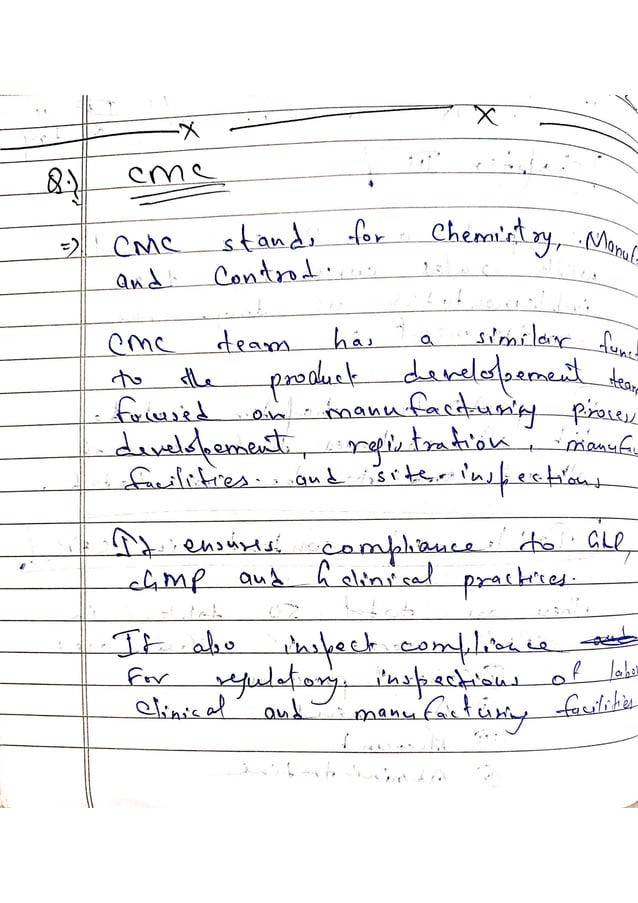 Q.} CMC
=> CMC stands for Chemistry, Manuf
and Control.
CMC team has a similar func
to the product developement team
focused on manufacturing process
developement, registration, manufa
facilities. and site inspections
It ensures compliance to GLP,
cGMP and G clinical practices.
It also inspect compliance
For regulatory inspections of labor
Clinical and manufacturing facilities